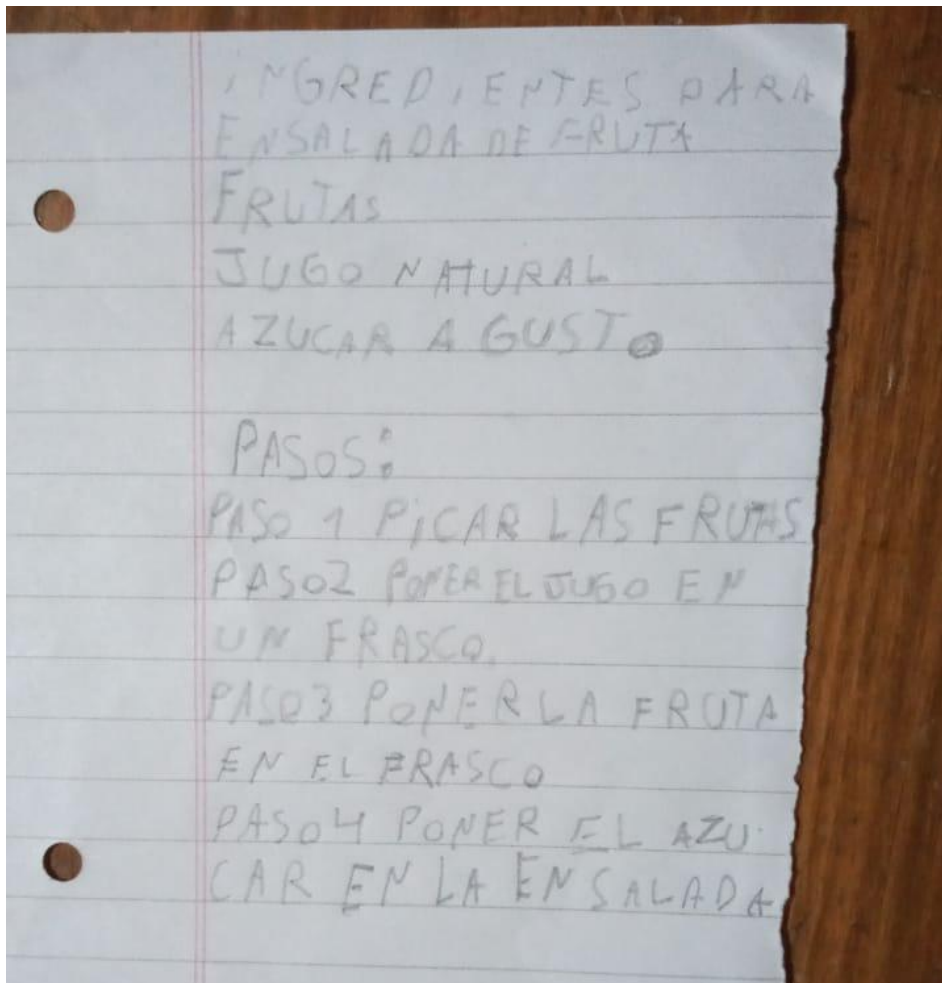 INGREDIENTES PARA
ENSALADA DE FRUTA
FRUTAS
JUGO NATURAL
AZUCAR A GUSTO
PASOS:
PASO 1 PiCAR LAS FRUTAS
PASO2 PONER EL JUGO EN
UN FRASCO.
PASO3 PONER LA FRUTA
EN EL FRASCO
PASO4 PONER EL AZU
CAR EN LA ENSALADA